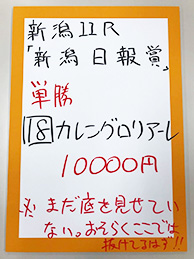 新潟11R
「新潟日報賞」
単勝
18カレングロリアーレ
10000円
※まだ底を見せてい
ない。おそらくここでは
抜けてるはず!!